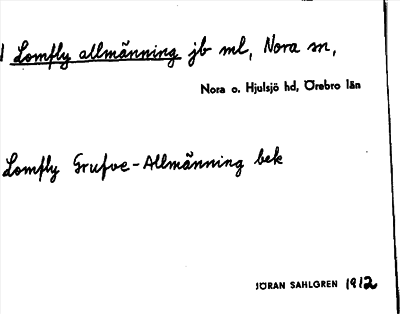 Lomfly allmänning jb ml, Nora sn,
Nora o. Hjulsjö hd, Örebro län
Lomfly Grufve-Allmänning bek
JÖRAN SAHLGREN 1912